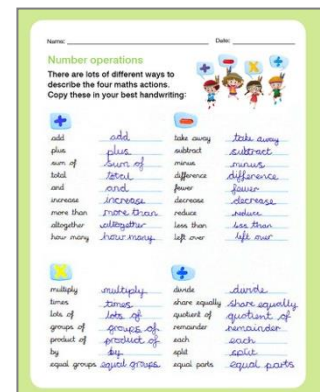 Name:
Date:
Number operations
There are lots of different ways to
describe the four maths actions.
Copy these in your best handwriting:
+
add add
plus plus
sum of sum of
total total
and and
increase increase
more than more than
altogether altogether
how many how many
−
take away take away
subtract subtract
minus minus
difference difference
fewer fewer
decrease decrease
reduce reduce
less than less than
left over left over
×
multiply multiply
times times
lots of lots of
groups of groups of
product of product of
by by
equal groups equal groups
÷
divide divide
share equally share equally
quotient of quotient of
remainder remainder
each each
split split
equal parts equal parts